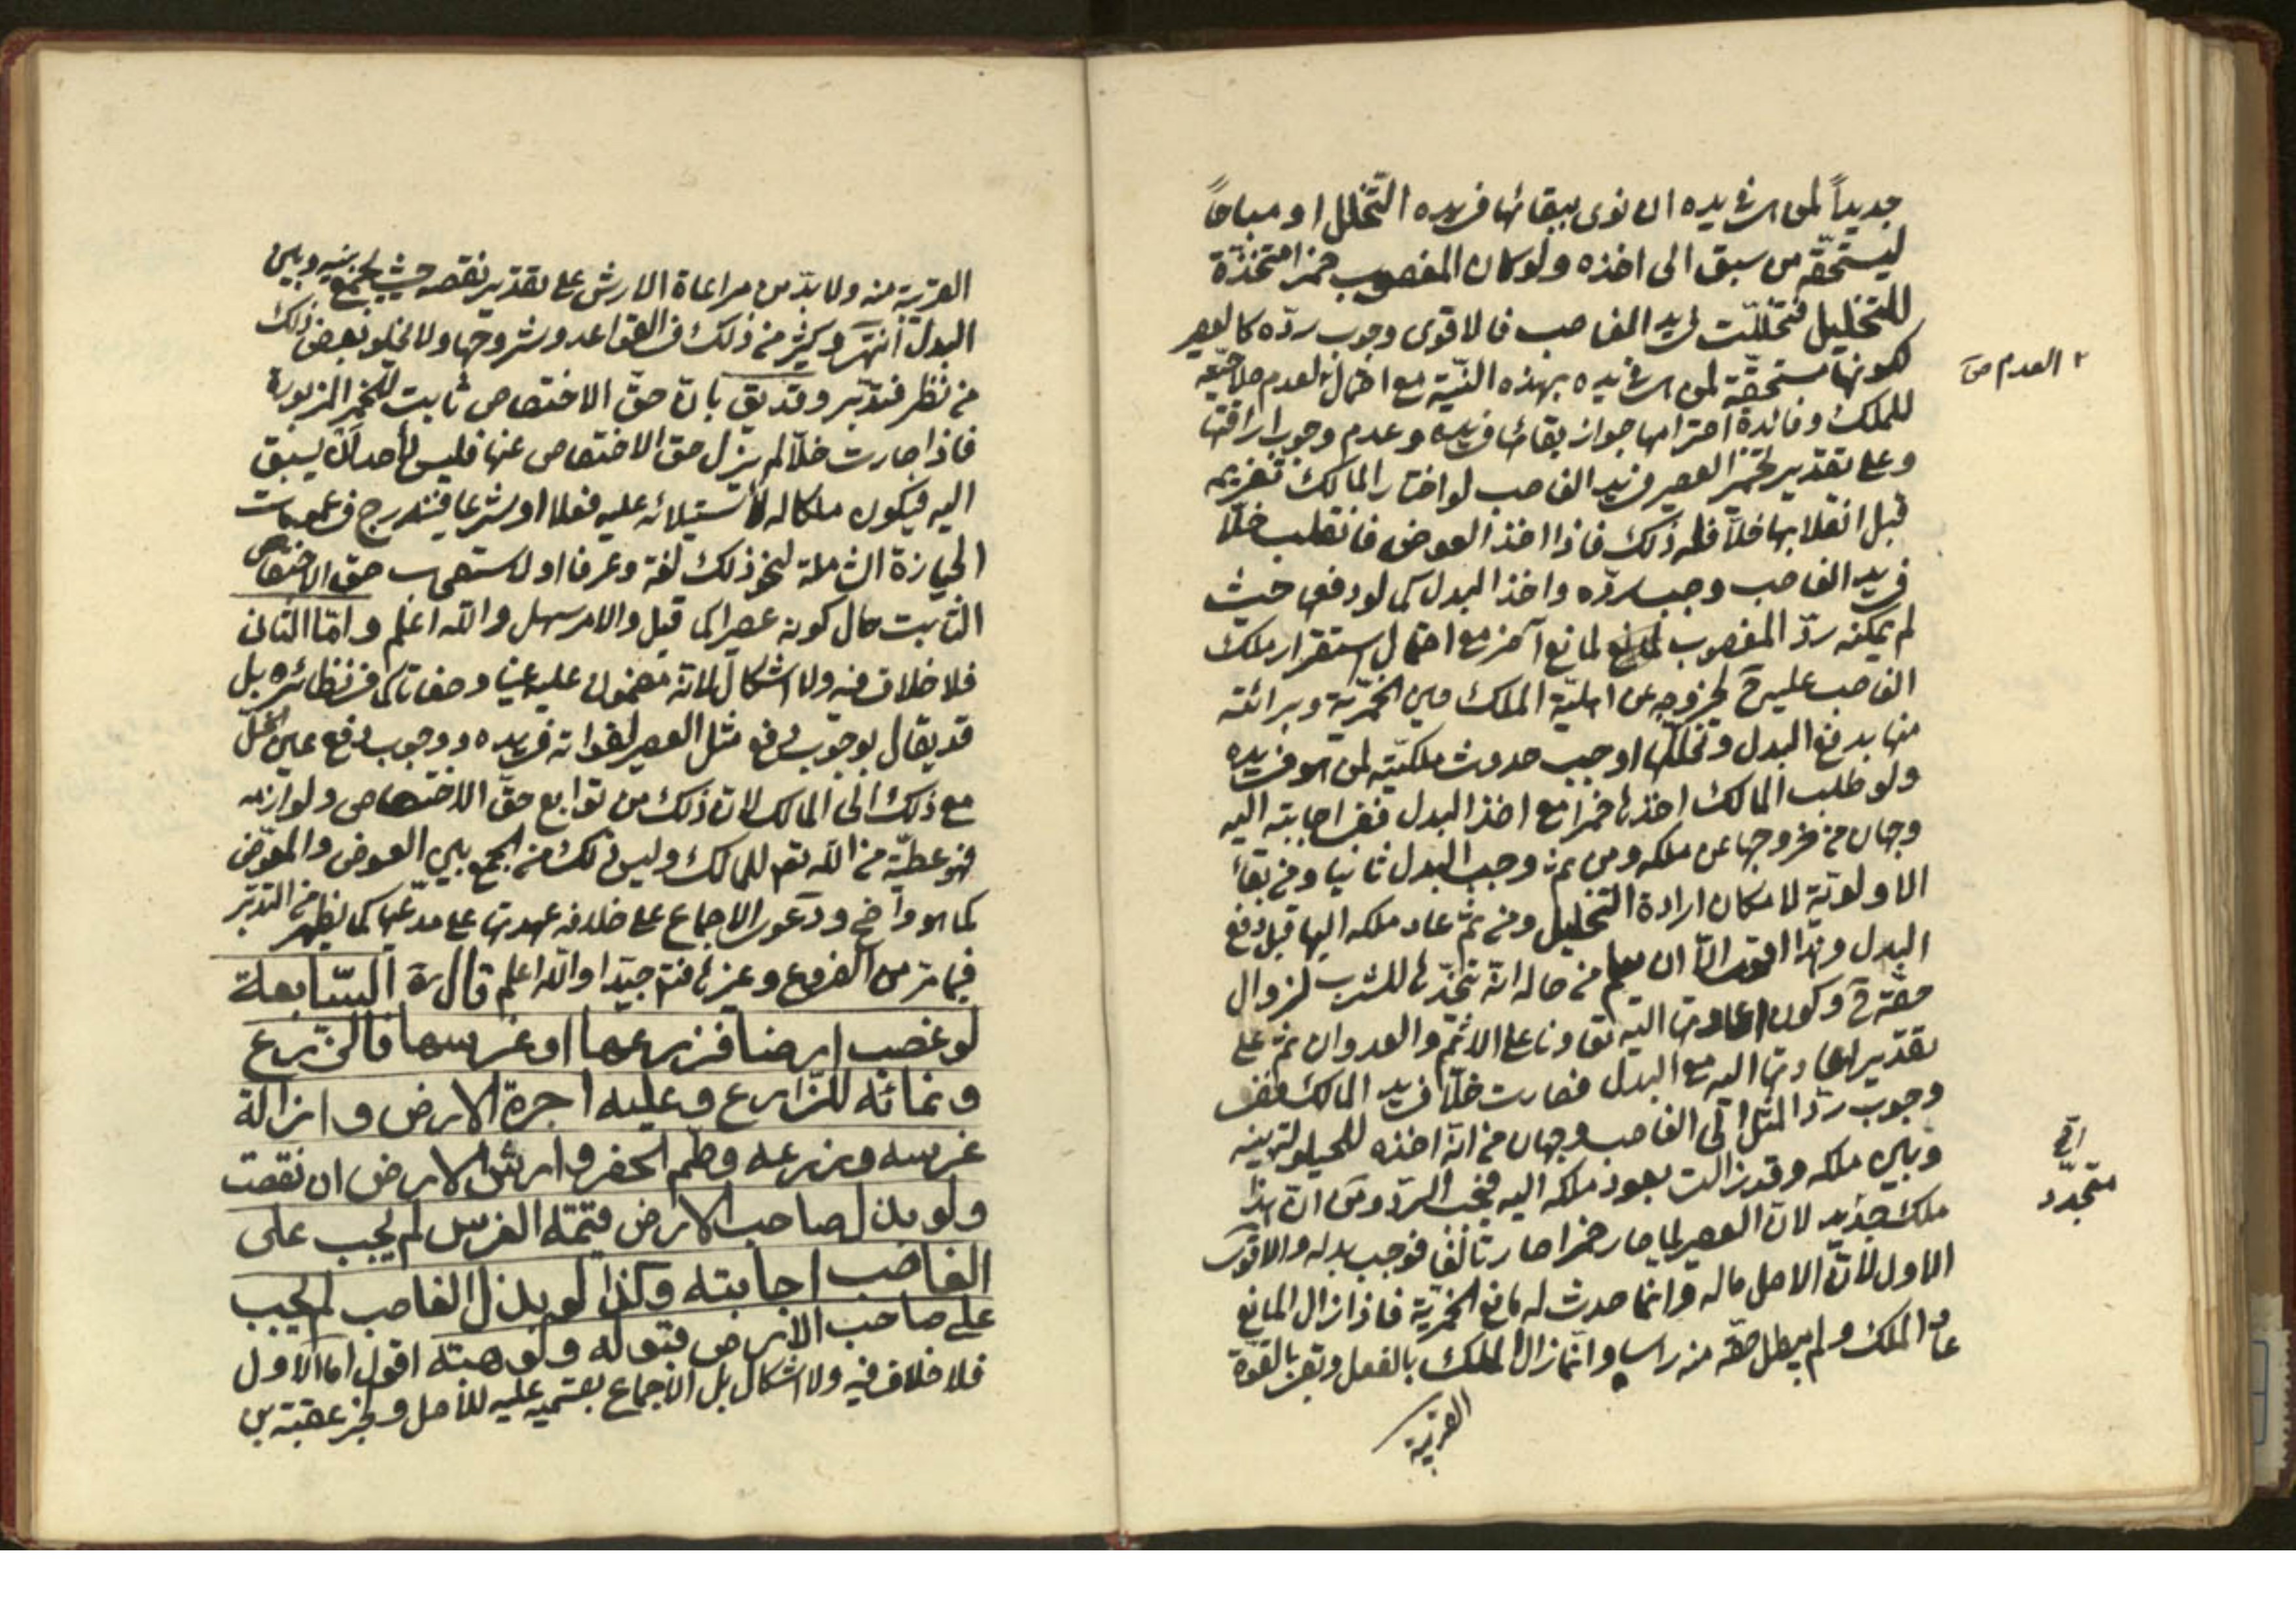 جديداً لمن هى فى يده ان نوى ببقائها فى يده التخلل او مباحاً
ليستحقه من سبق الى اخذه ولو كان المغصوب خمرا متخذة
للتخليل فتخللت فى يد الغاصب فالاقوى وجوب رده كالعصير
لكونها مستحقة لمن هى فى يده بهذه النية مع احتمال العدم لعدم صلاحيته
للملك وفائدة احترامها جواز بقائها فى يده وعدم وجوب اراقتها
وعلى تقدير تخمر العصير فى يد الغاصب لو اختار المالك تغريمه
قبل انقلابها خلا فله ذلك فاذا اخذ العوض فانقلب خلا
فى يد الغاصب وجب رده واخذ البدل كما لو دفعه حيث
لم يمكنه رد المغصوب لمانع آخر مع احتمال استقرار ملك
الغاصب عليه ح لخروجه عن اهلية الملك حين الخمرية وبرائته
منها بدفع البدل وتخللها اوجب حدوث ملكيته لمن هو فى يده
ولو طلب المالك اخذها خمرا مع اخذ البدل ففى اجابته اليه
وجهان من خروجها عن ملكه ومن ثم وجب البدل ثانيا ومن بقاء
الاولوية لامكان ارادة التخليل ومن ثم عاد ملكه اليها قبل دفع
البدل وهذا اقوى الا ان يعلم من حاله انه يتخذها للشرب لزوال
حقه ح وكون اعادتها اليه تعاونا على الاثم والعدوان ثم على
تقدير اعادتها اليه مع البدل فصارت خلا فى يد المالك ففى
وجوب رد المثل الى الغاصب وجهان من انه اخذه للحيلولة بينه
وبين ملكه وقد زالت بعود ملكه اليه فيجب الرد ومن ان هذا
ملك جديد لان العصير لما صار خمرا صار تالفا فوجب بدله والاقوى
الاول لان الاصل ماله وانما حدث له مانع الخمرية فاذا زال المانع
عاد الملك ولم يبطل حقه منه راسا وانما زال الملك بالفعل وبقى بالقوة
القريبة
العدم ص
متجدد
القريبة منه ولا بد من مراعاة الارش على تقدير نقصه حيث يجمع بينه وبين
البدل انتهى وكثير من ذلك فى القواعد وشروحها ولا يخلو بعض ذلك
من نظر فتدبر وقد يق بان حق الاختصاص ثابت للخمر المزبورة
فاذا صارت خلا لم يزل حق الاختصاص عنها فليس لأحد ان يسبق
اليه فيكون ملكا له لاستيلائه عليه فعلا او شرعا فيندرج فى عمومات
الحيازة الشاملة لنحو ذلك لغة وعرفا او لاستصحاب حق الاختصاص
الثابت حال كونه عصيرا كما قيل والامر سهل والله اعلم واما الثانى
فلا خلاف فيه ولا اشكال لانه مضمون عليه عينا وصفاتا كما فى نظائره بل
قد يقال بوجوب دفع مثل العصير لفواته فى يده ووجوب دفع عين الخل
مع ذلك الى المالك لان ذلك من توابع حق الاختصاص ولوازمه
فهو عطية من الله تعم للمالك وليس ذلك من الجمع بين العوض والمعوض
كما هو واضح ودعوى الاجماع على خلافه عهدتها على مدعيها كما يظهر من التدبر
فيما مر من الفروع وغيرها فتم جيدا والله اعلم قال ره السابعة
لو غصب ارضا فزرعها او غرسها فالزرع
ونمائه للزارع وعليه اجرة الارض وازالة
غرسه وزرعه وطم الحفر وارش الارض ان نقصت
ولو بذل صاحب الارض قيمة الغرس لم يجب على
الغاصب اجابته وكذا لو بذل الغاصب لم يجب
على صاحب الارض قبوله ولو هبة اقول اما الاول
فلا خلاف فيه ولا اشكال بل الاجماع بقسميه عليه للاصل وخبر عقبة بن